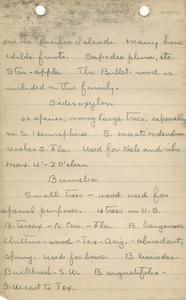 on the Pacific islands. Many have
edible fruits. Sapodea plum, etc.
Star-apple. The Bullet-wood is
included in this family.
Sideroxylon
60 species, many large trees, especially
in S. Hemisphere. S. mastodendron
reaches S. Fla. Used for keels and ribs.
Max 4'-70' clean
Bumelia
Small trees - wood used for
special purposes. 4 trees in U.S.
B. tenax - N. Car. - Fla. B. lanuginosa
Chittim-wood - Tex - Ariz. - abundant;
springy. Used for bows. B.
Buckbrush - S.W. B. angustifolia -
S.W. east to Tex.